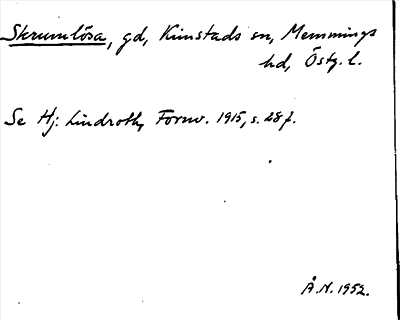 Skrumlösa, gd, Kimstads sn, Memmings
hd, Östg. l.
Se Hj. Lindroth, Fornv. 1915, s. 28 f.
Å.N. 1952.